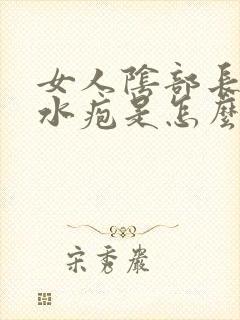 女人陰部長
水疱是怎麼
宋秀巖